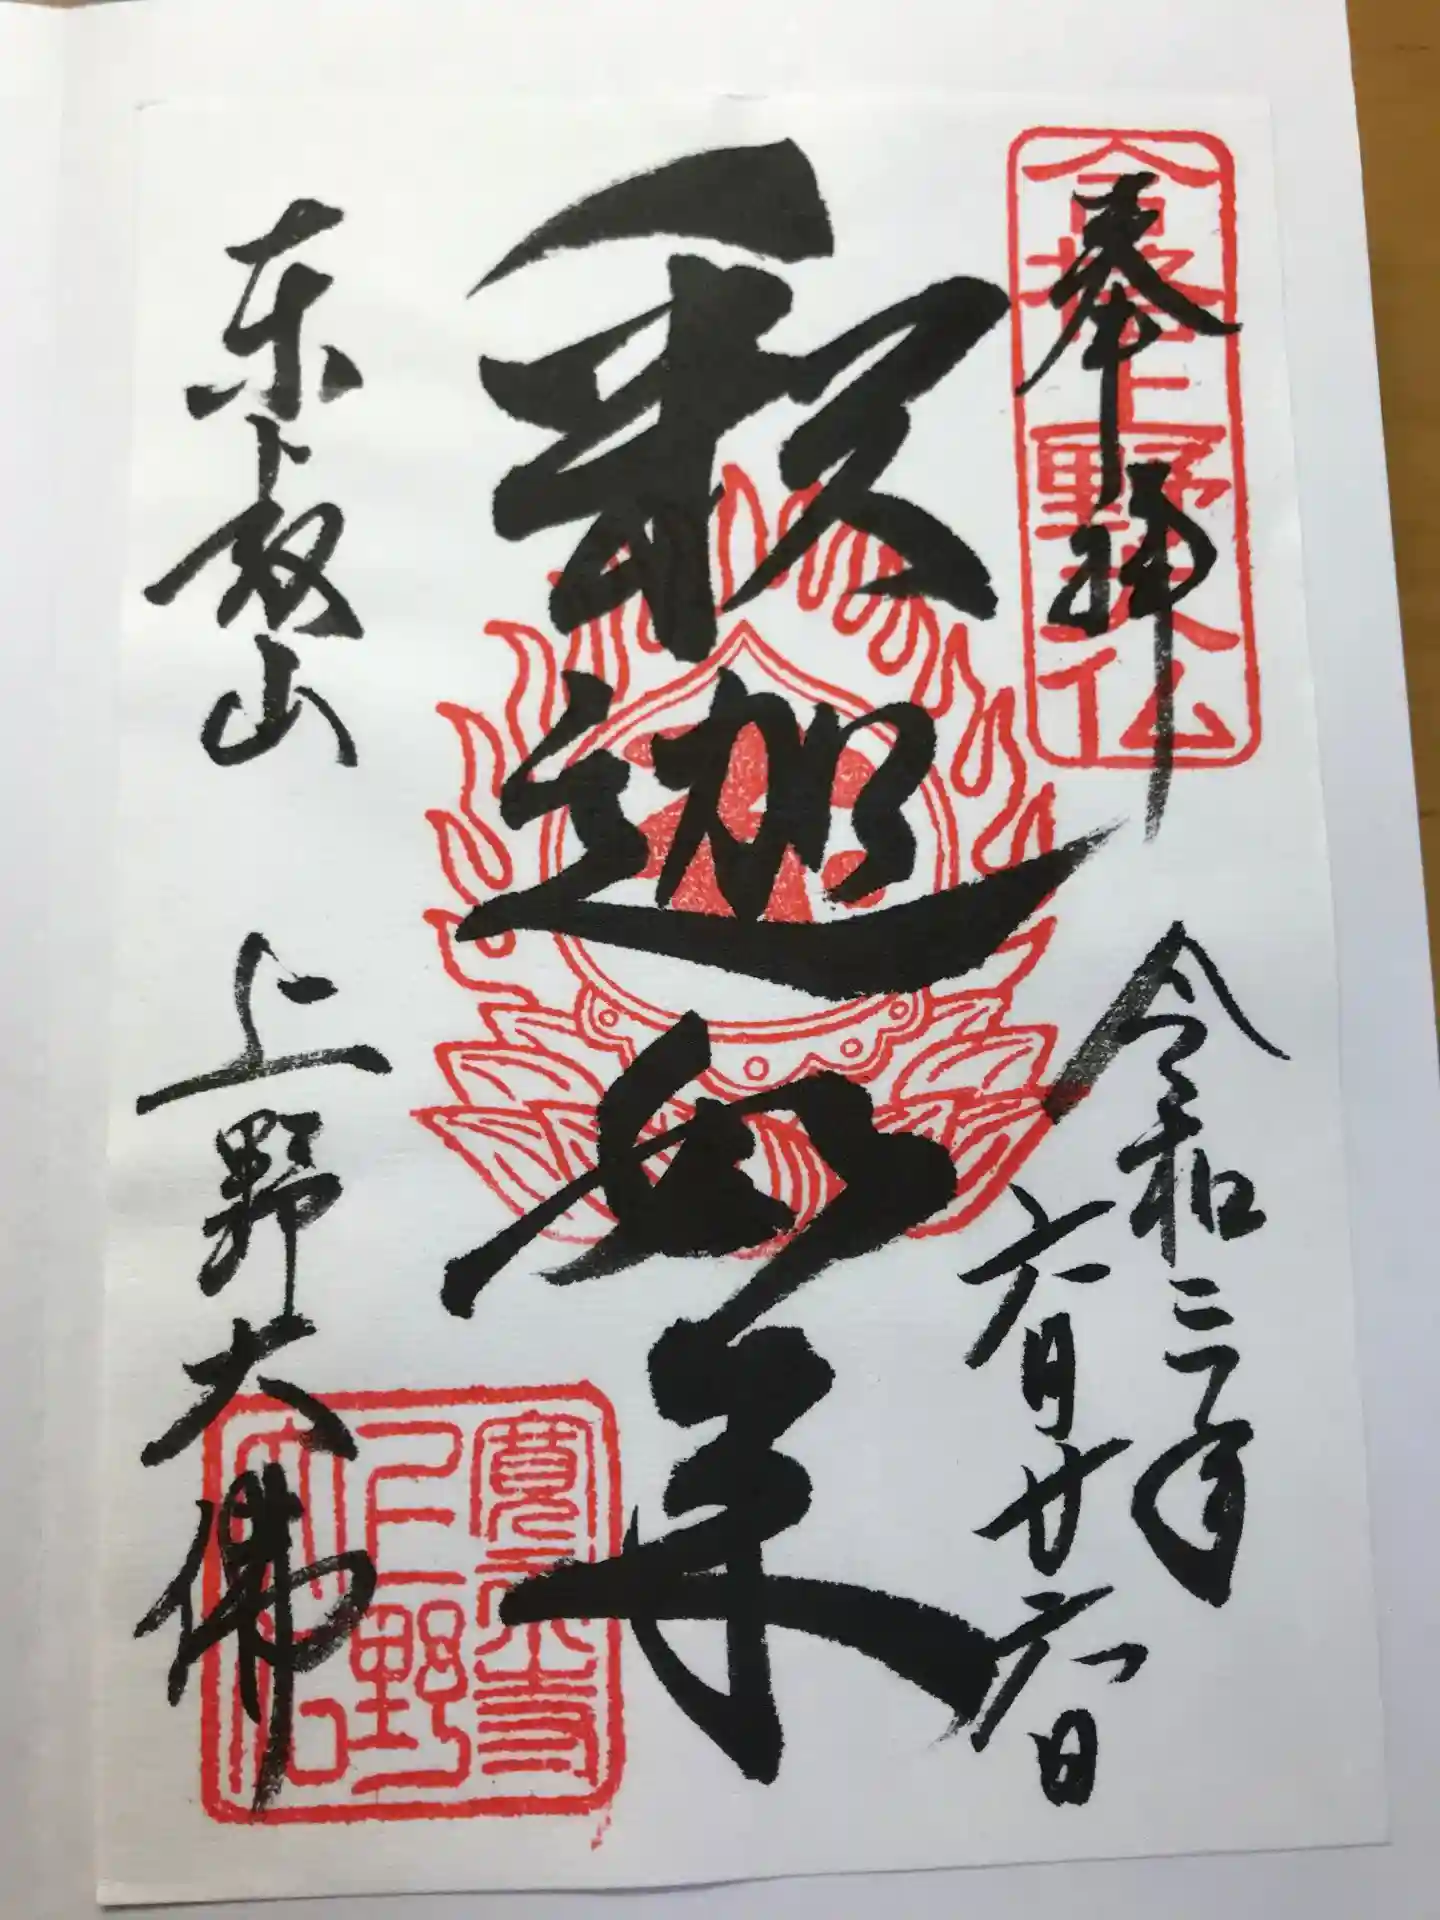 奉拝
合格上野大仏
令和二年
六月廿六日
釈迦如来
東叡山
上野大佛
寛永寺
上野
大仏